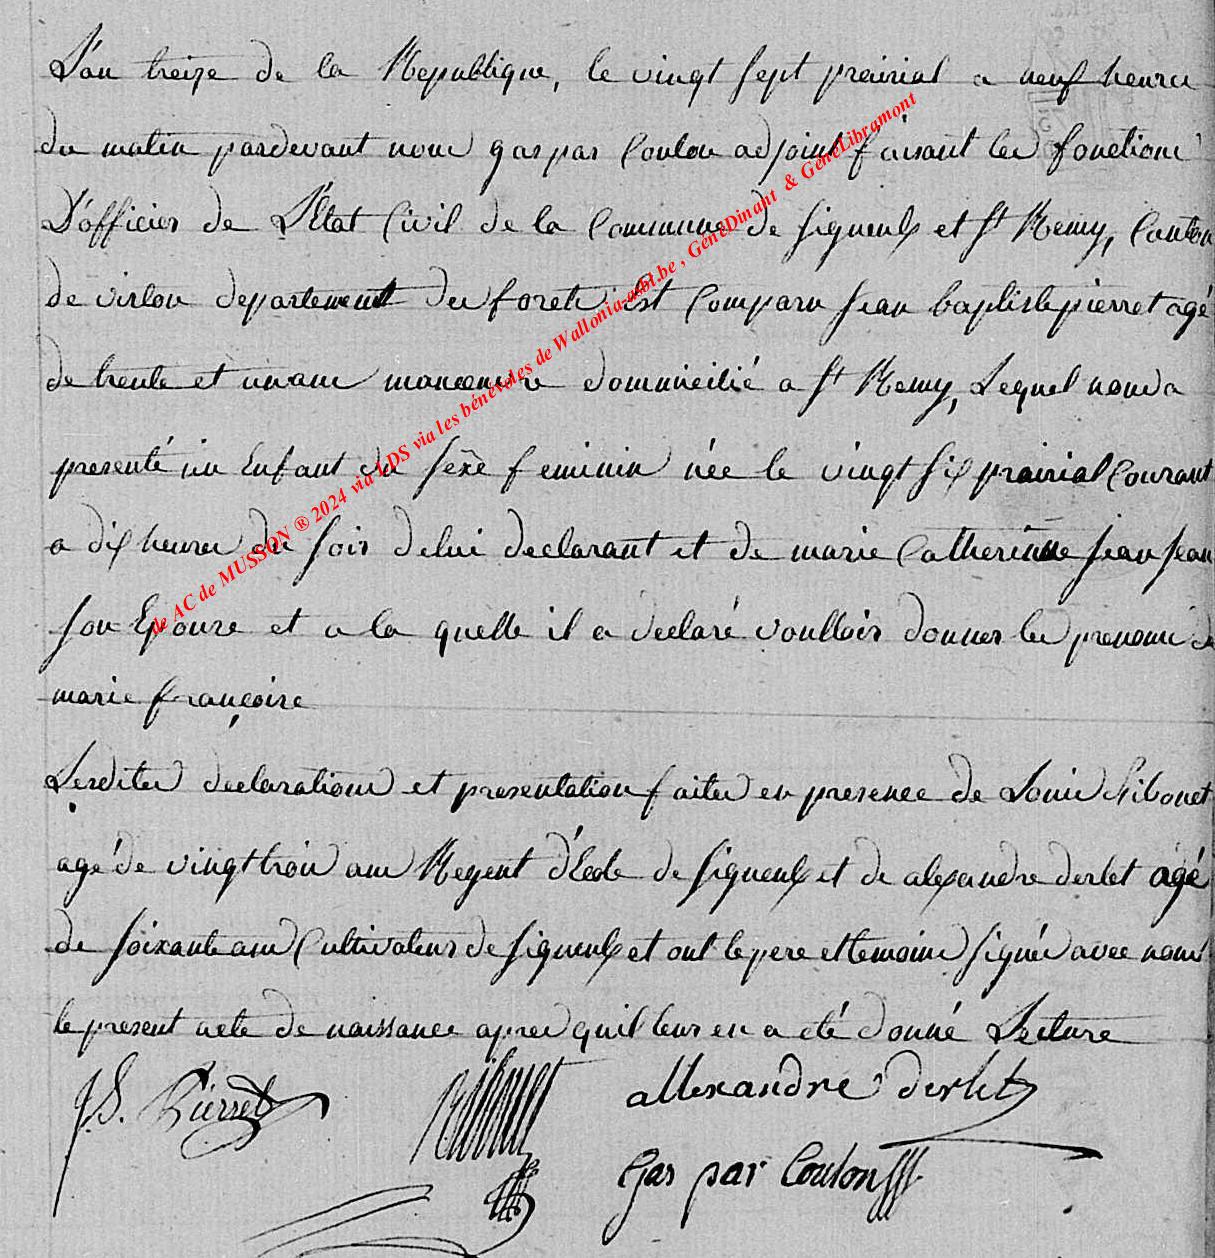 L'an treize de la Republique, le vingt sept prairial a neuf heures
du matin pardevant nous gaspar Coulon adjoint faisant les fonctions
D'officier de L'Etat Civil de la Commune de Signeulx et St Remy, Canton
de virton departement des forets Est Comparu jean baptiste pierret agé
de trente et un ans manoeuvre domicilié a St Remy, Lequel nous a
presenté un Enfant du sexe feminin née le vingt six prairial Courant
a dix heures du soir de lui declarant et de marie Catherinne jean jean
son Epouse et a la quelle il a declaré voulloir donner les prenoms de
marie françoise
Lesdites declarations et presentation faites en presence de Louis
agé de vingt trois ans Regent d'Ecole de Signeulx et de alexandre derlet agé
de soixante ans Cultivateur de Signeulx et ont le pere et temoins signés avec nous
le present acte de naissance apres quil leur en a été donné Lecture
Pierret
allexandre derlet
Gas par Coulon
de AC de MUSSON ® 2024 via LDS via les bénévoles de Wallonia-asbl.be , GénéDinant & GénéLibramont